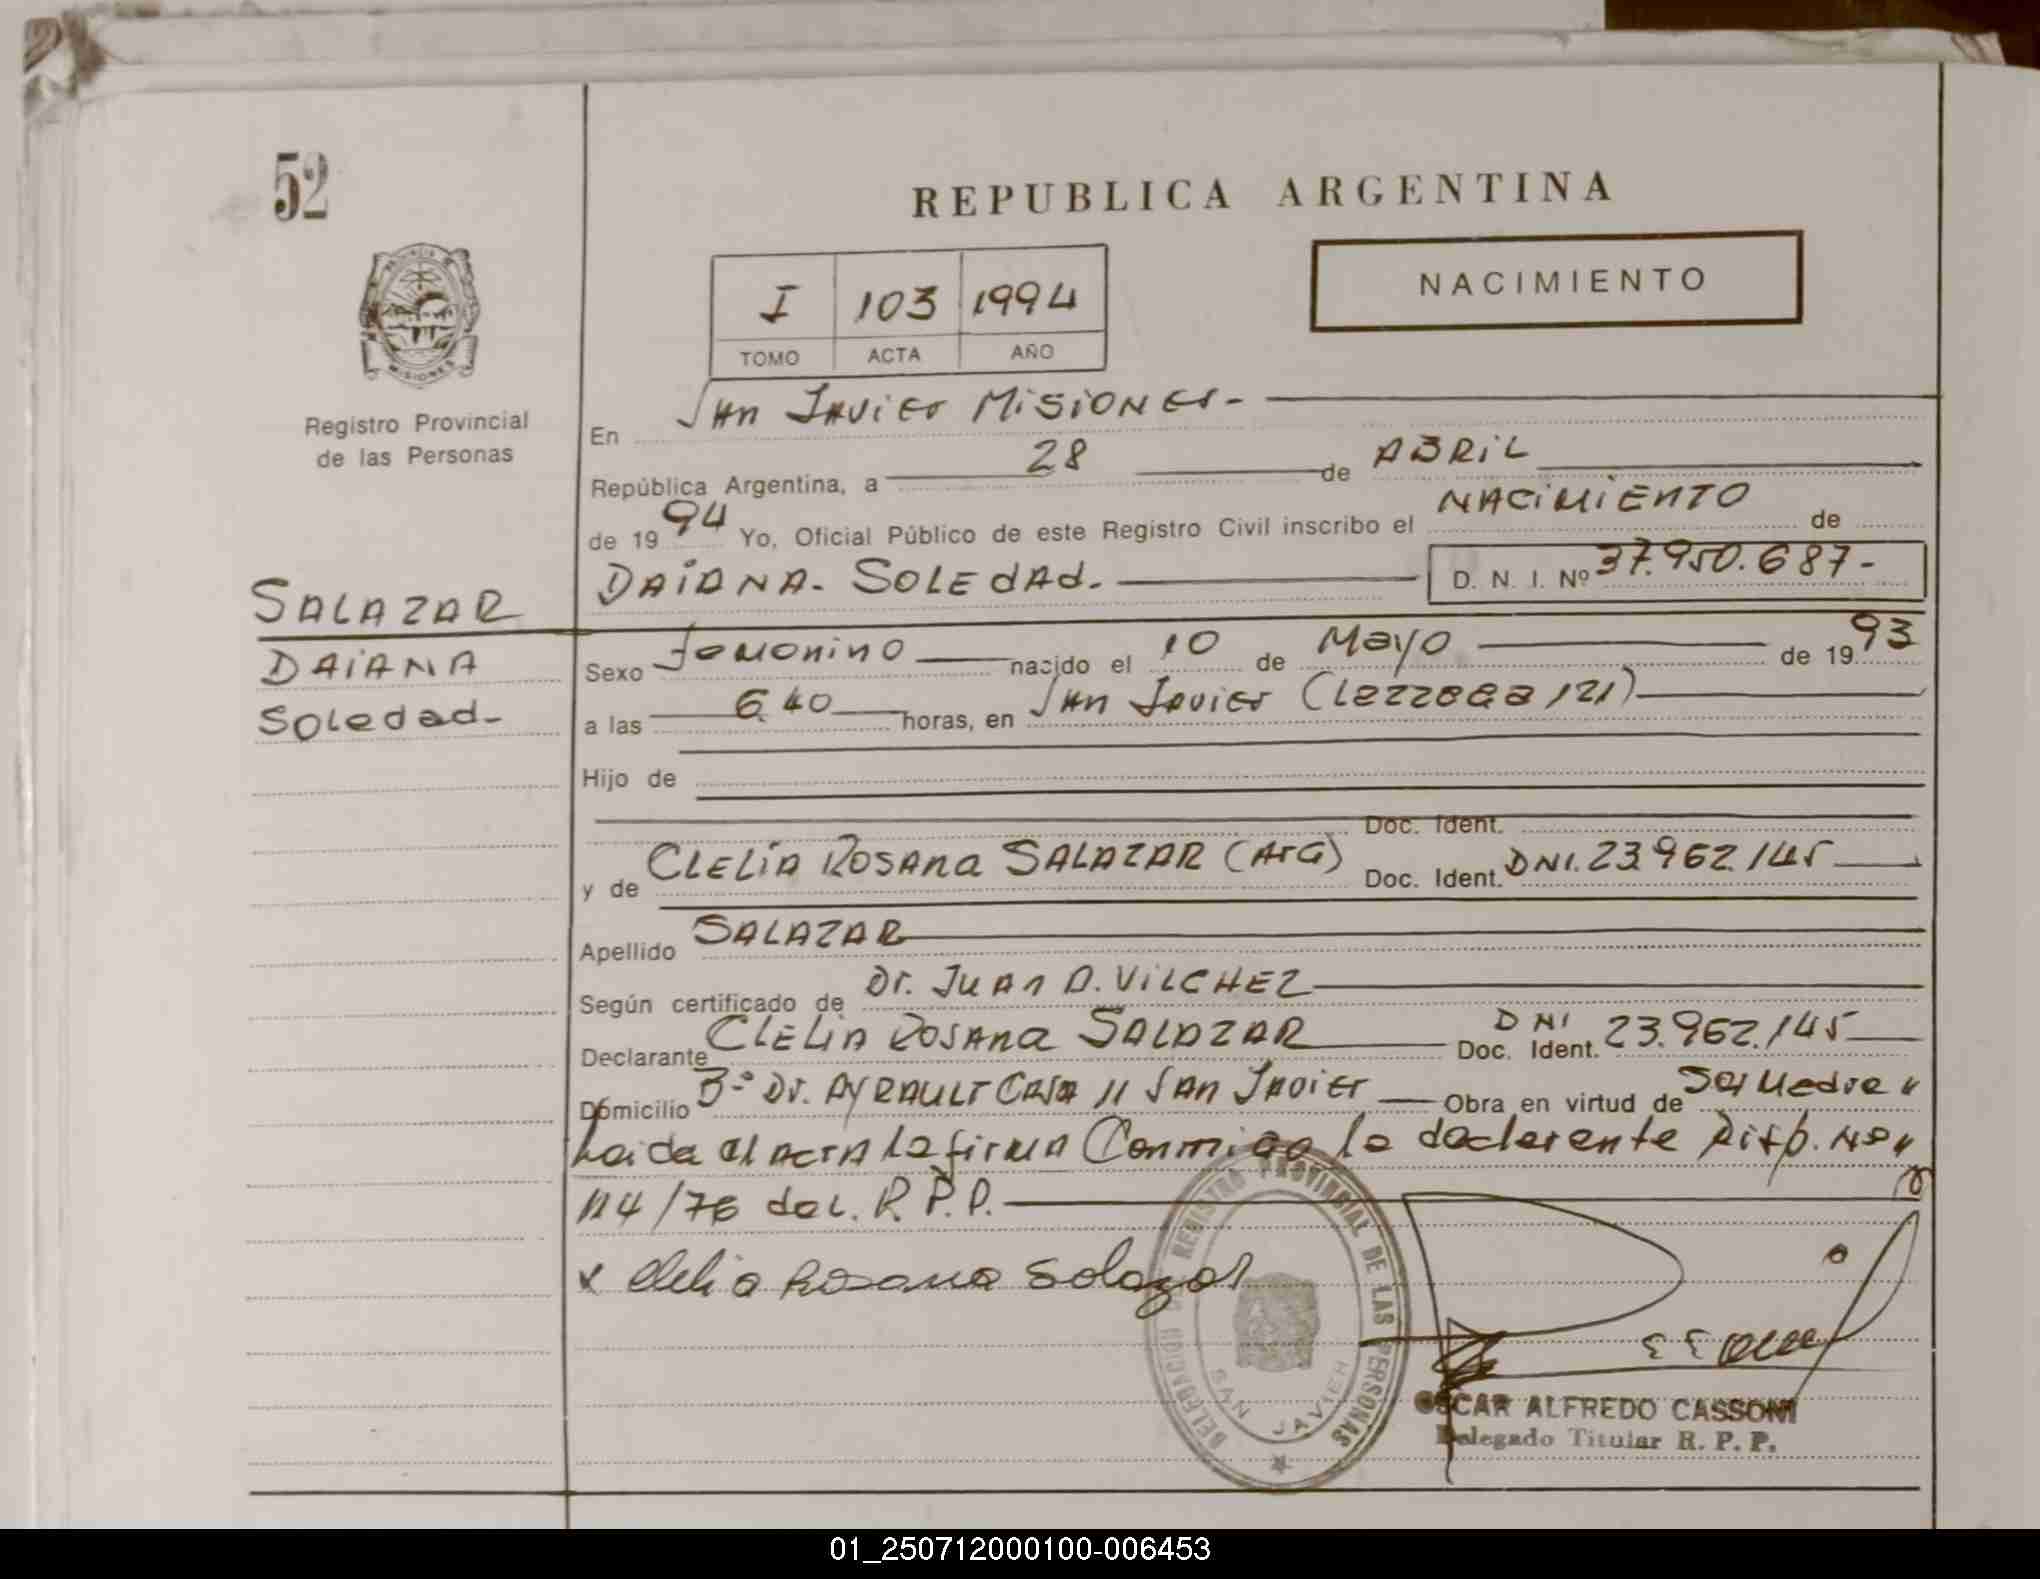 52
REPUBLICA ARGENTINA
NACIMIENTO
I 103 1994
TOMO ACTA AÑO
PROVINCIA DE
MISIONES
Registro Provincial
de las Personas
En San Javier Misiones-
República Argentina, a 28 de ABRIL
de 1994 Yo, Oficial Público de este Registro Civil inscribo el NACIMIENTO de
DAIANA- SOLEdAd- D. N. I. Nº 37.950.687-
SALAZAR
DAIANA
Soledad-
Sexo femenino nacido el 10 de Mayo de 1993
a las 6.40 horas, en San Javier ( 121)
Hijo de
Doc. Ident.
y de CLELIA ROSANA SALAZAR (ArG) Doc. Ident. DNI. 23.962.145
Apellido SALAZAR
Según certificado de Dr. JUAN D. VILCHEZ
Declarante CLELIA ROSANA SALAZAR Doc. Ident. DNI 23.962.145
Domicilio Bº Dr. AYRAULT CASA 11 San Javier Obra en virtud de Ser Madre
Leida el ACTA la firma Conmigo la declarente Disp. Nº
114/76 del. R.P.P.
x Clelia Rosana Salazar
DELEGACION DE REGISTRO PROVINCIAL DE LAS PERSONAS
SAN JAVIER
OSCAR ALFREDO CASSONI
Delegado Titular R. P. P.
01_250712000100-006453